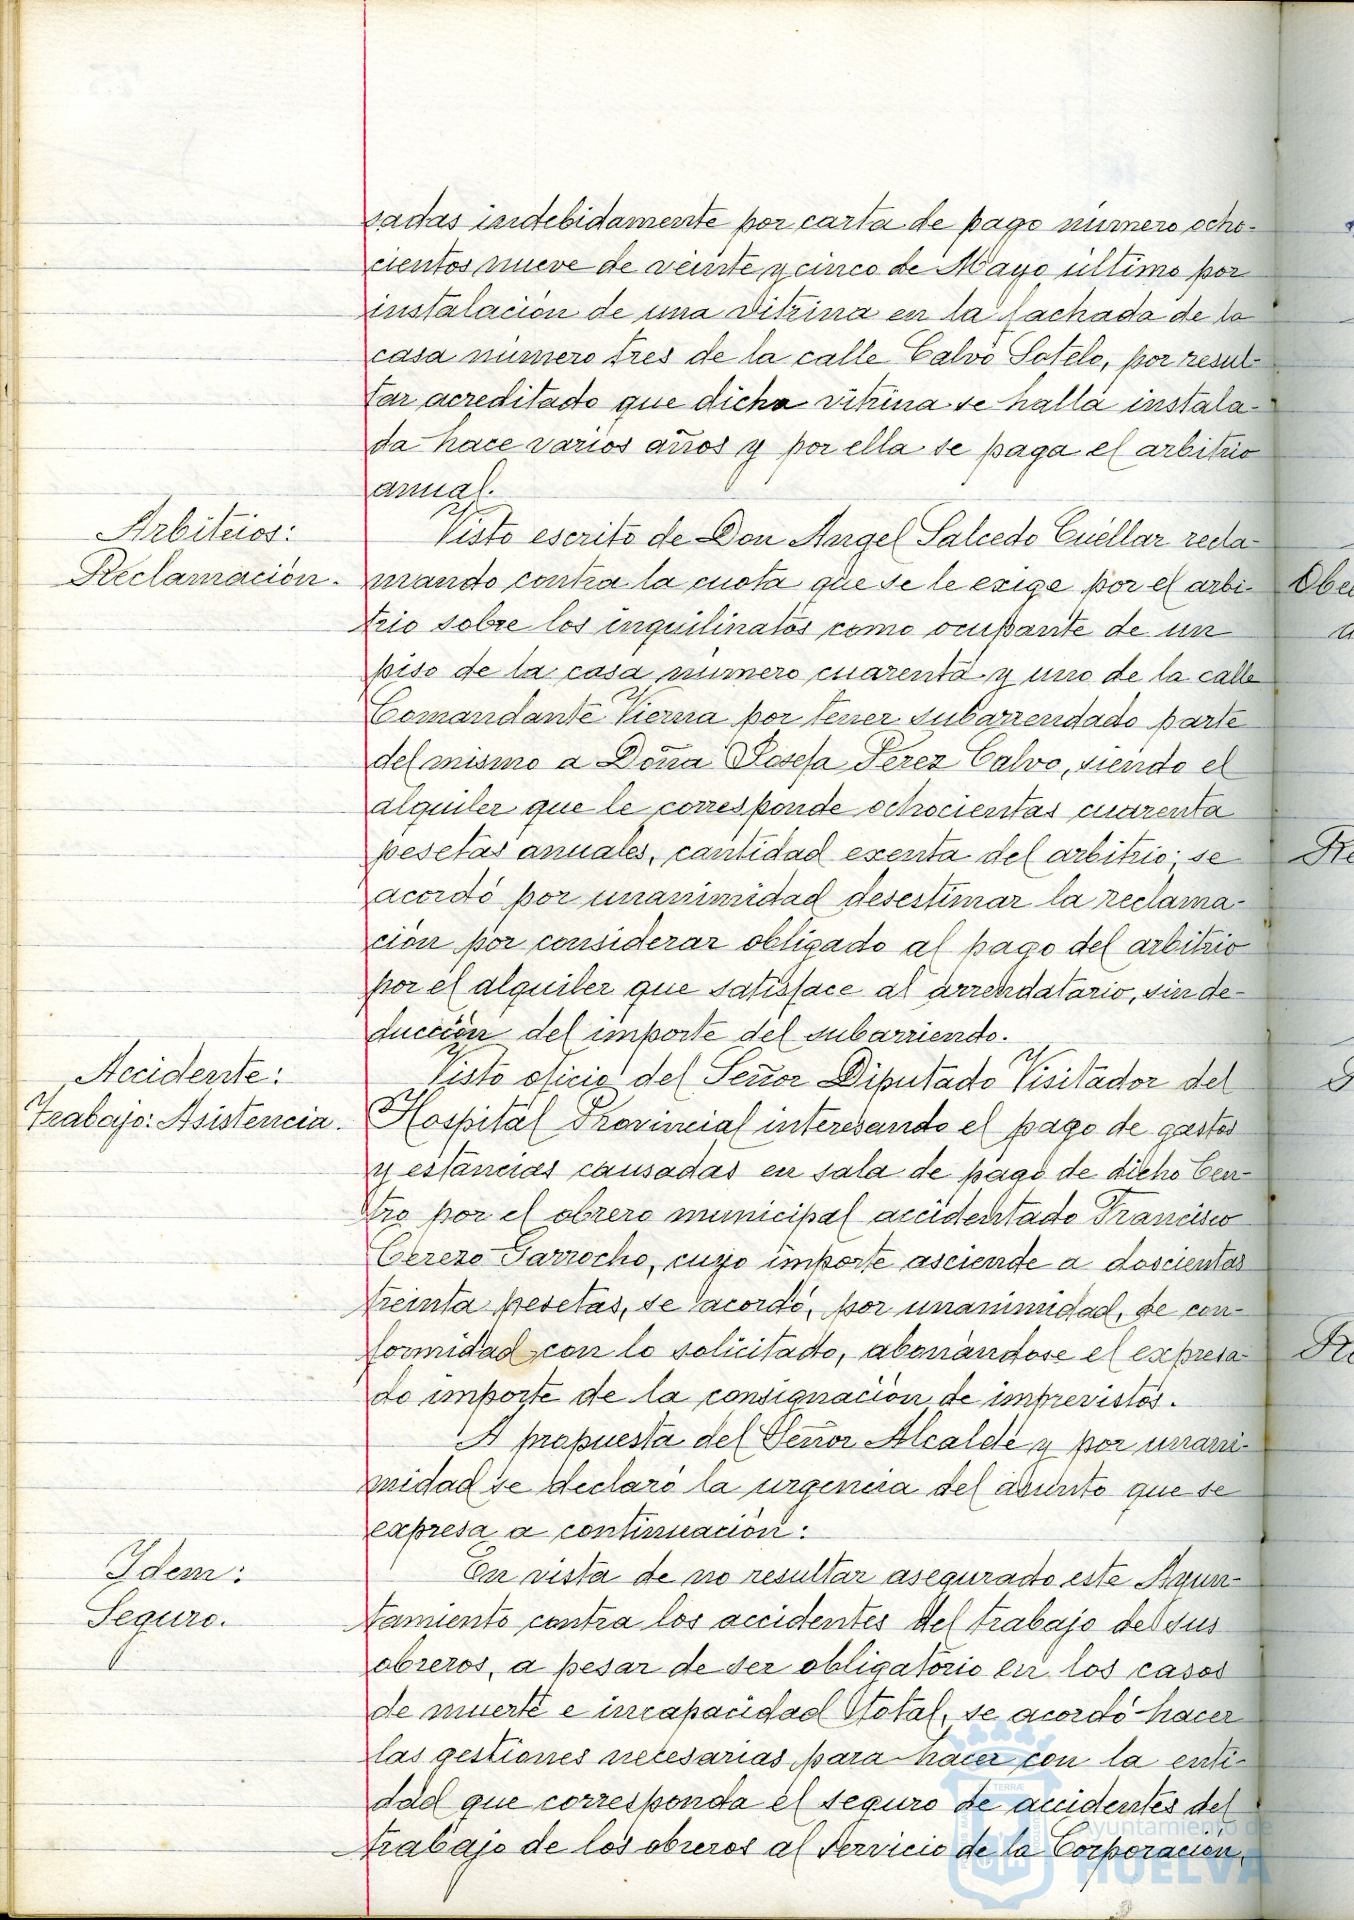 sadas indebidamente por carta de pago número ocho-
cientos nueve de veinte y cinco de Mayo último por
instalación de una vitrina en la fachada de la
casa número tres de la calle Calvo Sotelo, por resul-
tar acreditado que dicha vitrina se halla instala-
da hace varios años y por ella se paga el arbitrio
anual.
Arbitrios:
Reclamación.
Visto escrito de Don Angel Salcedo Cuéllar recla-
mando contra la cuota que se le exige por el arbi-
trio sobre los inquilinatos como ocupante de un
piso de la casa número cuarenta y uno de la calle
Comandante Vierna por tener subarrendado parte
del mismo a Doña Josefa Pérez Calvo, siendo el
alquiler que le corresponde ochocientas cuarenta
pesetas anuales, cantidad exenta del arbitrio; se
acordó por unanimidad desestimar la reclama-
ción por considerar obligado al pago del arbitrio
por el alquiler que satisface al arrendatario, sin de-
ducción del importe del subarriendo.
Accidente:
Trabajo: Asistencia.
Visto oficio del Señor Diputado Visitador del
Hospital Provincial interesando el pago de gastos
y estancias causadas en sala de pago de dicho Cen-
tro por el obrero municipal accidentado Francisco
Cerezo Garrocho, cuyo importe asciende a doscientas
treinta pesetas, se acordó, por unanimidad, de con-
formidad con lo solicitado, abonándose el expresa-
do importe de la consignación de imprevistos.
A propuesta del Señor Alcalde y por unani-
midad se declaró la urgencia del asunto que se
expresa a continuación:
Idem:
Seguro.
En vista de no resultar asegurado este Ayun-
tamiento contra los accidentes del trabajo de sus
obreros, a pesar de ser obligatorio en los casos
de muerte e incapacidad total, se acordó hacer
las gestiones necesarias para hacer con la enti-
dad que corresponda el seguro de accidentes del
trabajo de los obreros al servicio de la Corporación,
Ayuntamiento de
HUELVA